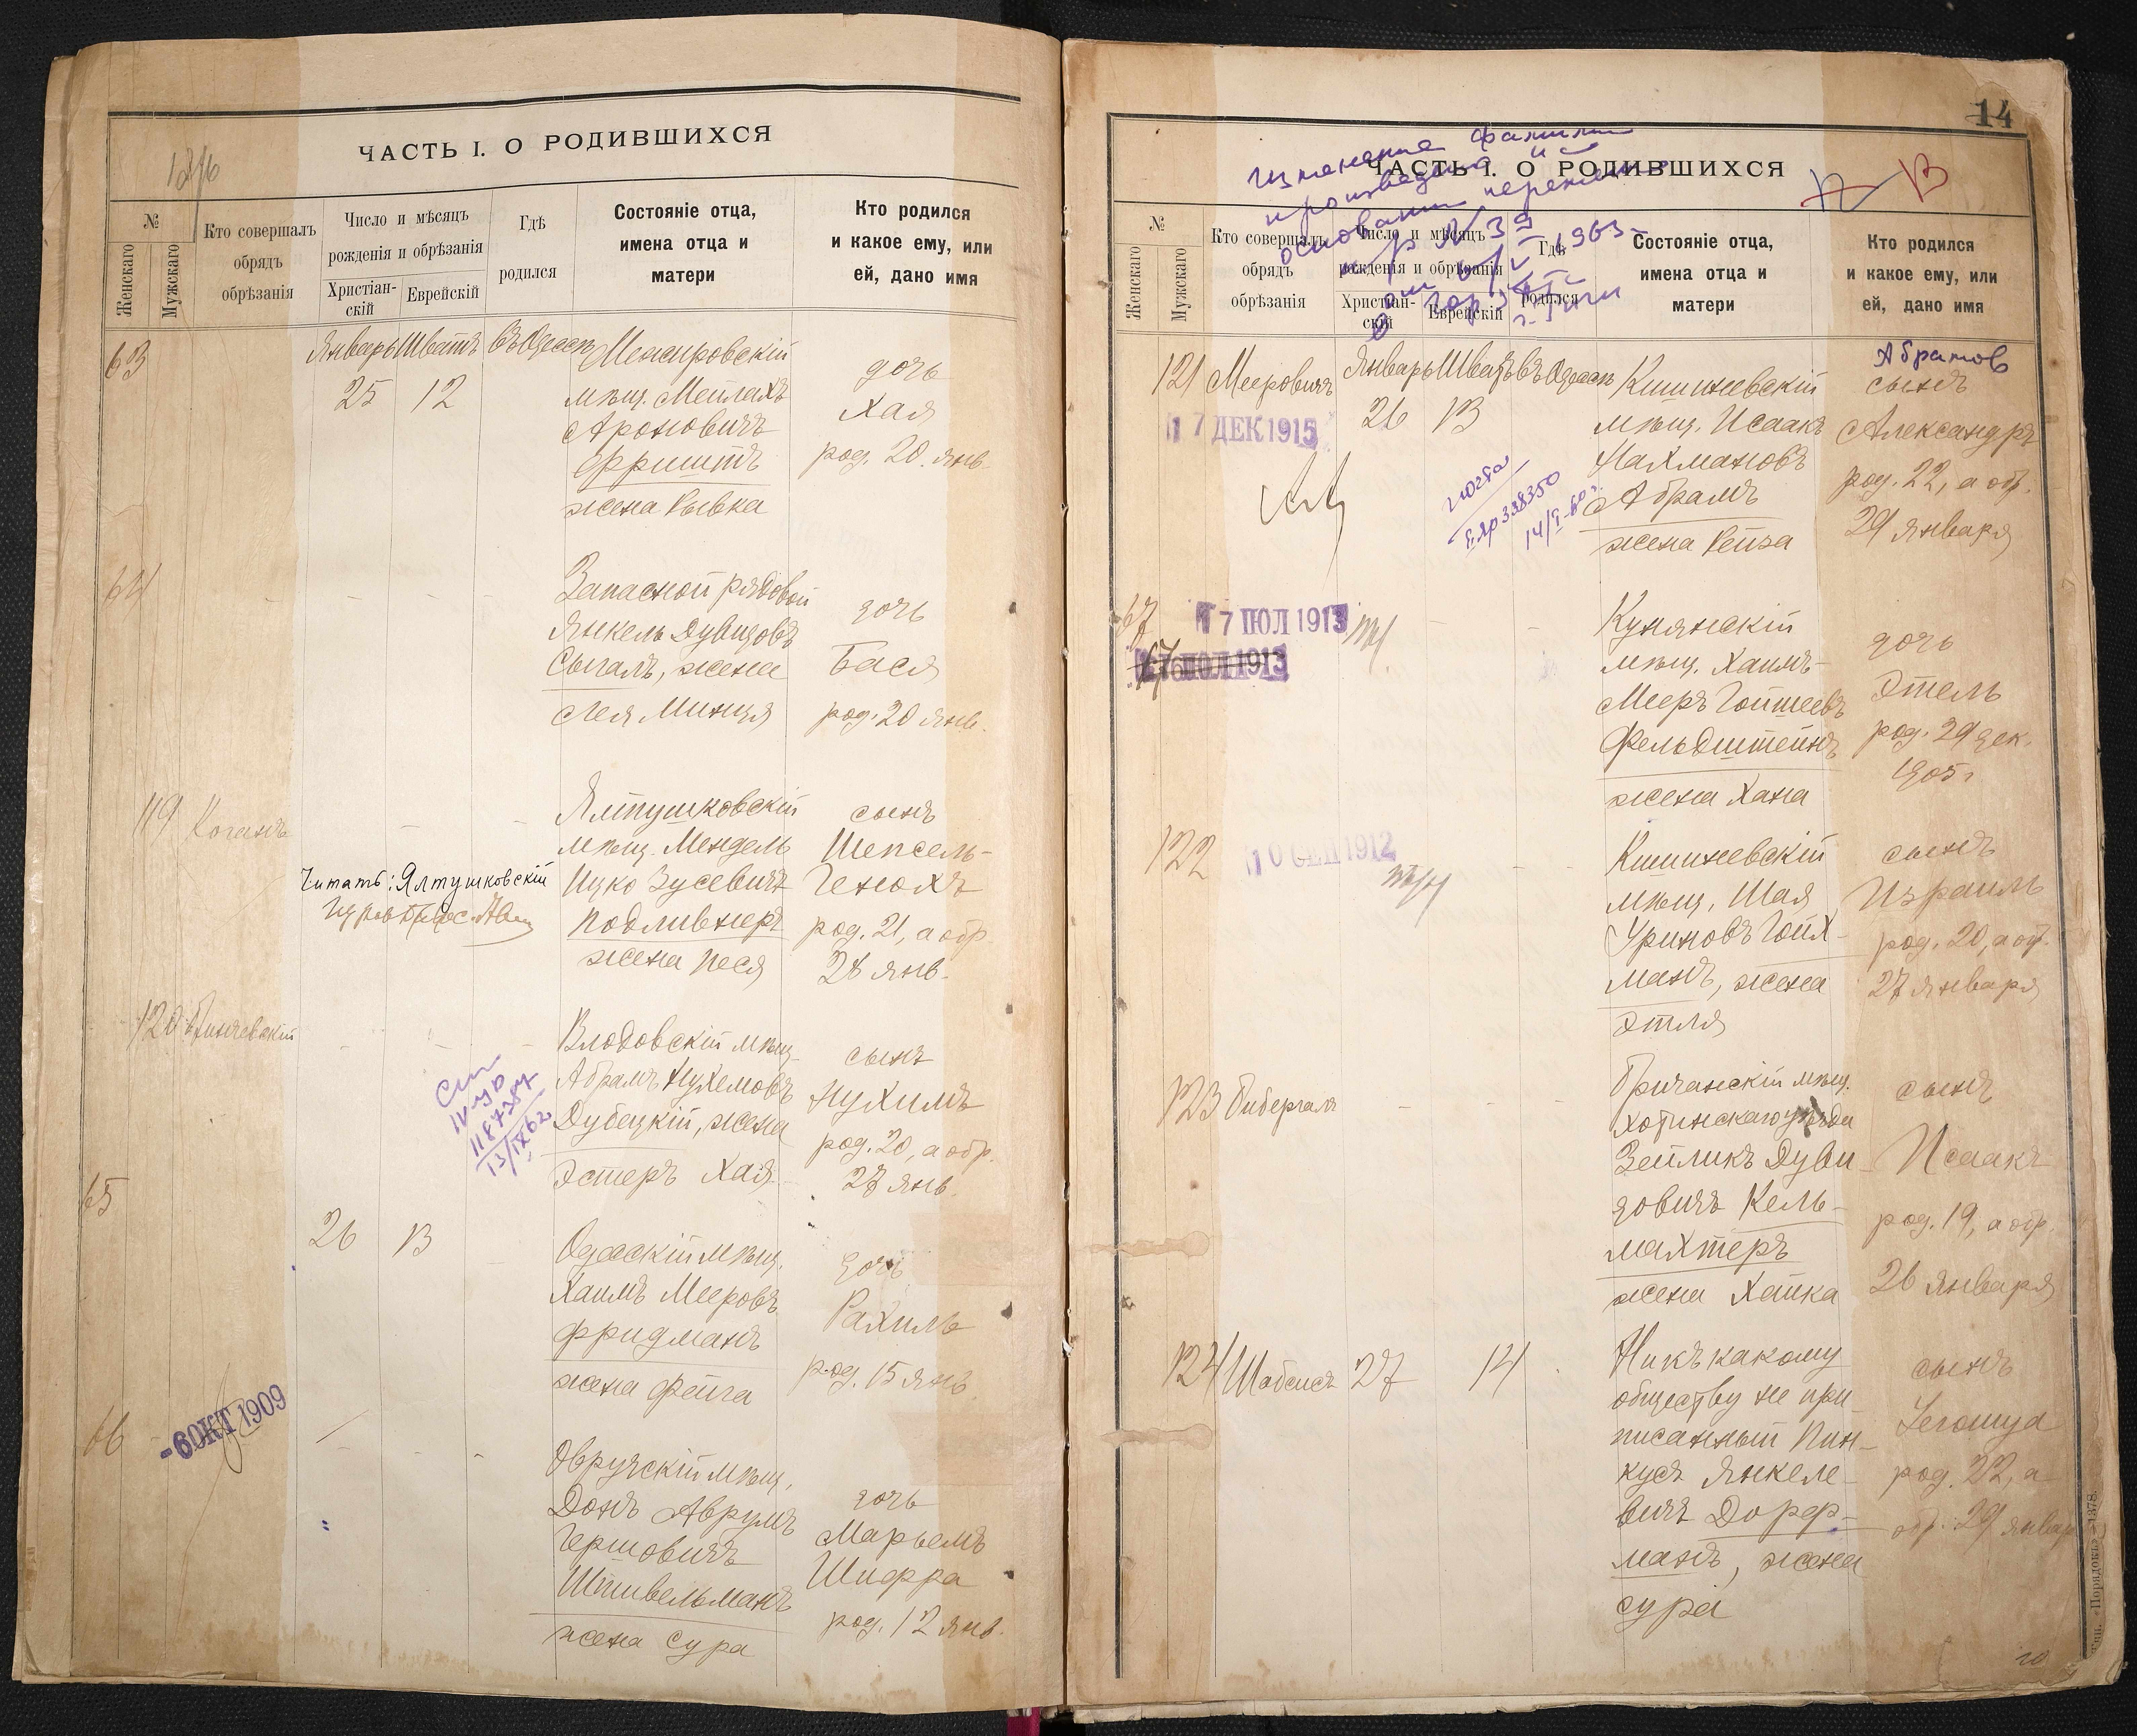 ЧАСТЬ I. О РОДИВШИХСЯ
№
Женскаго
Мужскаго
Кто совершалъ
обрядъ
обрѣзанія
Число и мѣсяцъ
рожденія и обрѣзанія
Христіан-
скій
Еврейскій
Гдѣ
родился
Состояніе отца,
имена отца и
матери
Кто родился
и какое ему, или
ей, дано имя
63
Январь Шватъ въ Одессѣ
25 12
мѣщ. Мейлахъ
Ароновичъ
жена Рывка
дочь
Хая
род. 20 янв.
64
Запасной рядовой
Янкель Дувидовъ
Сыгалъ, жена
Лея Минця
дочь
Бася
род. 20 янв.
119 Коганъ
Читать: Ялтушковскій
Ялтушковскій
мѣщ. Мендель
Ицко Зусевичъ
Подливнеръ
жена Песя
сынъ
Шепсель-
Генохъ
род. 21, а обр.
28 янв.
120
13/IX 62
Влодовскій мѣщ.
Абрамъ Нухемовъ
Дубецкій, жена
Эстеръ Хая
сынъ
Нухимъ
род. 20, а обр.
27 янв.
65
26 13
Одесскій мѣщ.
Хаимъ Мееровъ
Фридманъ
жена Фейга
дочь
Рахиль
род. 15 янв
66
-6 ОКТ 1909
Овручскій мѣщ.
Донъ Аврумъ
Гершовичъ
Штивельманъ
жена Сура
дочь
Марьемъ
Шифра
род. 12 янв.
14
13
изменение фамилии
произведена
основании
ЧАСТЬ I. О РОДИВШИХСЯ
№
Женскаго
Мужскаго
Кто совершалъ
обрядъ
обрѣзанія
Число и мѣсяцъ
рожденія и обрѣзанія
Христіан-
скій
Еврейскій
Гдѣ
родился
Состояніе отца,
имена отца и
матери
Кто родился
и какое ему, или
ей, дано имя
121 Мееровичъ
Январь Шватъ въ Одессѣ
26 13
17 ДЕК 1915
Кишиневскій
мѣщ. Исаакъ
Нахмановъ
Абрамъ
жена Рейза
Абрамов
сынъ
Александръ
род. 22, а обр.
29 января
67
17 ІЮЛ 1913
мѣщ. Хаимъ-
Мееръ Гойшеевъ
Фельдштейнъ
жена Хана
дочь
Этель
род. 29 дек.
1905 г
122
10 СЕП 1912
Кишиневскій
мѣщ. Шая
Уриновъ Гойх-
манъ, жена
Этля
сынъ
Израиль
род. 20, а обр.
27 января
123 Бибергалъ
Бричанскій мѣщ.
Хотинскаго уѣзда
Зейликъ Дуви-
довичъ Кель-
махтеръ
жена Хайка
сынъ
Исаакъ
род. 19, а обр.
26 января
124 Шабсисъ 27 14
Ни къ какому
обществу не при-
писанный Пин-
кусъ Янкеле-
вичъ Дорф-
манъ, жена
Сура
сынъ
Iегошуа
род. 22, а
обр. 29 январ
Тип. «Порядокъ»-1378.